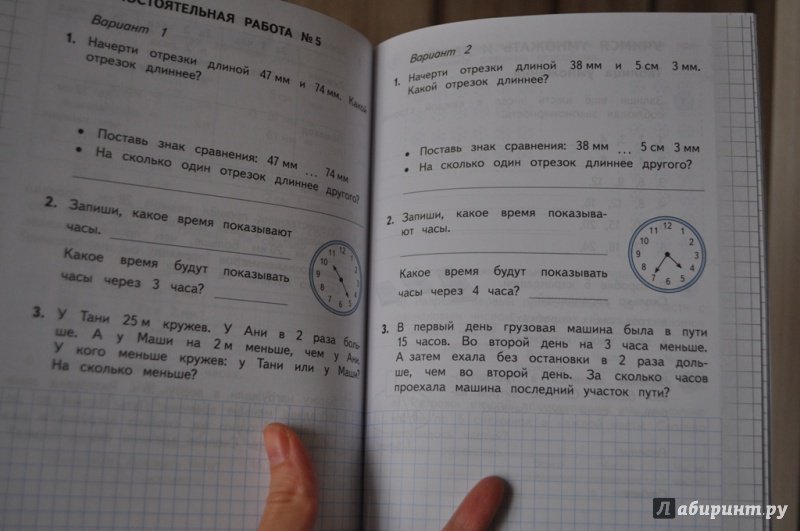 ОСТОЯТЕЛЬНАЯ РАБОТА № 5
Вариант 1
1. Начерти отрезки длиной 47 мм и 74 мм. Какой
отрезок длиннее?
• Поставь знак сравнения: 47 мм ... 74 мм
• На сколько один отрезок длиннее другого?
2. Запиши, какое время показывают
часы.
Какое время будут показывать
часы через 3 часа?
11 12 1
10 2
9 3
8 4
7 6 5
3. У Тани 25 м кружев. У Ани в 2 раза боль-
ше. А у Маши на 2 м меньше, чем у Ани.
У кого меньше кружев: у Тани или у Маши?
На сколько меньше?
Вариант 2
1. Начерти отрезки длиной 38 мм и 5 см 3 мм.
Какой отрезок длиннее?
• Поставь знак сравнения: 38 мм ... 5 см 3 мм
• На сколько один отрезок длиннее другого?
2. Запиши, какое время показыва-
ют часы.
Какое время будут показывать
часы через 4 часа?
11 12 1
10 2
9 3
8 4
7 6 5
3. В первый день грузовая машина была в пути
15 часов. Во второй день на 3 часа меньше.
А затем ехала без остановки в 2 раза доль-
ше, чем во второй день. За сколько часов
проехала машина последний участок пути?
Лабиринт.ру